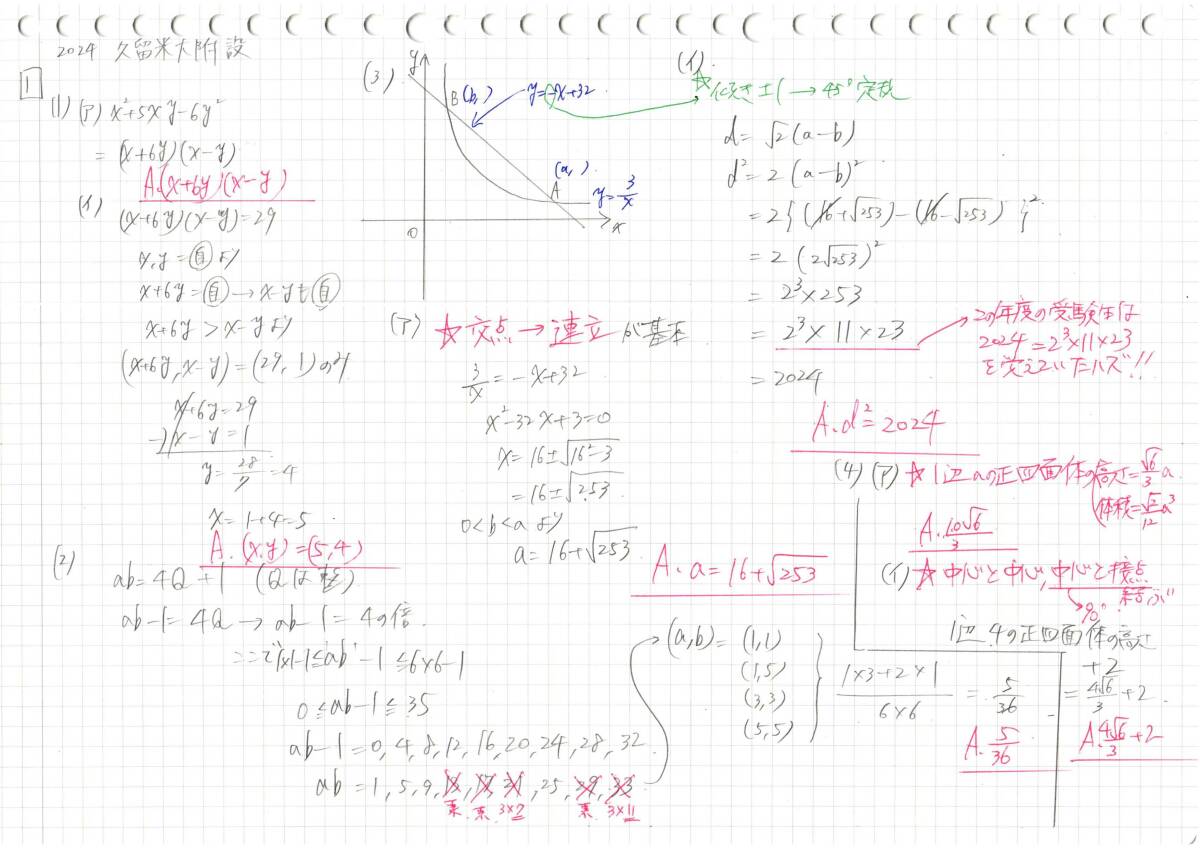 2024 久留米大附設
1
(1) (ア) x²+5xy-6y²
= (x+6y)(x-y)
A.(x+6y)(x-y)
(イ)
(x+6y)(x-y)=29
x,y=自より
x+6y=自→x-yも自
x+6y>x-yより
(x+6y,x-y)=(29,1)のみ
x+6y=29
-)x-y=1
y=28/7=4
x=1+4=5
A.(x,y)=(5,4)
(2)
ab=4Q+1 (Qは整)
ab-1=4Q→ab-1=4の倍
ここで1×1-1≦ab-1≦6×6-1
0≦ab-1≦35
ab-1=0,4,8,12,16,20,24,28,32
ab=1,5,9,13,17,21,25,29,33
素 素 3×7 素 3×11
(a,b)=(1,1)
(1,5)
(3,3)
(5,5)
(1×3+2×1)/(6×6) = 5/36
A. 5/36
(3)
y
B (b, )
y=-x+32
(a, )
A
y=3/x
O
x
(ア) ☆交点→連立が基本
3/x=-x+32
x²-32x+3=0
x=16±√(16²-3)
=16±√253
0<b<aより
a=16+√253
A. a=16+√253
(イ)
☆傾き±1→45°定規
d=√2(a-b)
d²=2(a-b)²
=2{(16+√253)-(16-√253)}²
=2(2√253)²
=2³×253
=2³×11×23
=2024
この年度の受験生は
2024=2³×11×23
を覚えていたハズ!!
A. d²=2024
(4) (ア) ☆1辺aの正四面体の高さ=√6/3 a
体積=√2/12 a³
A. 10√6/3
(イ) ☆中心と中心,中心と接点
結ぶ
90°
1辺4の正四面体の高さ
+2
=4√6/3+2
A. 4√6/3+2